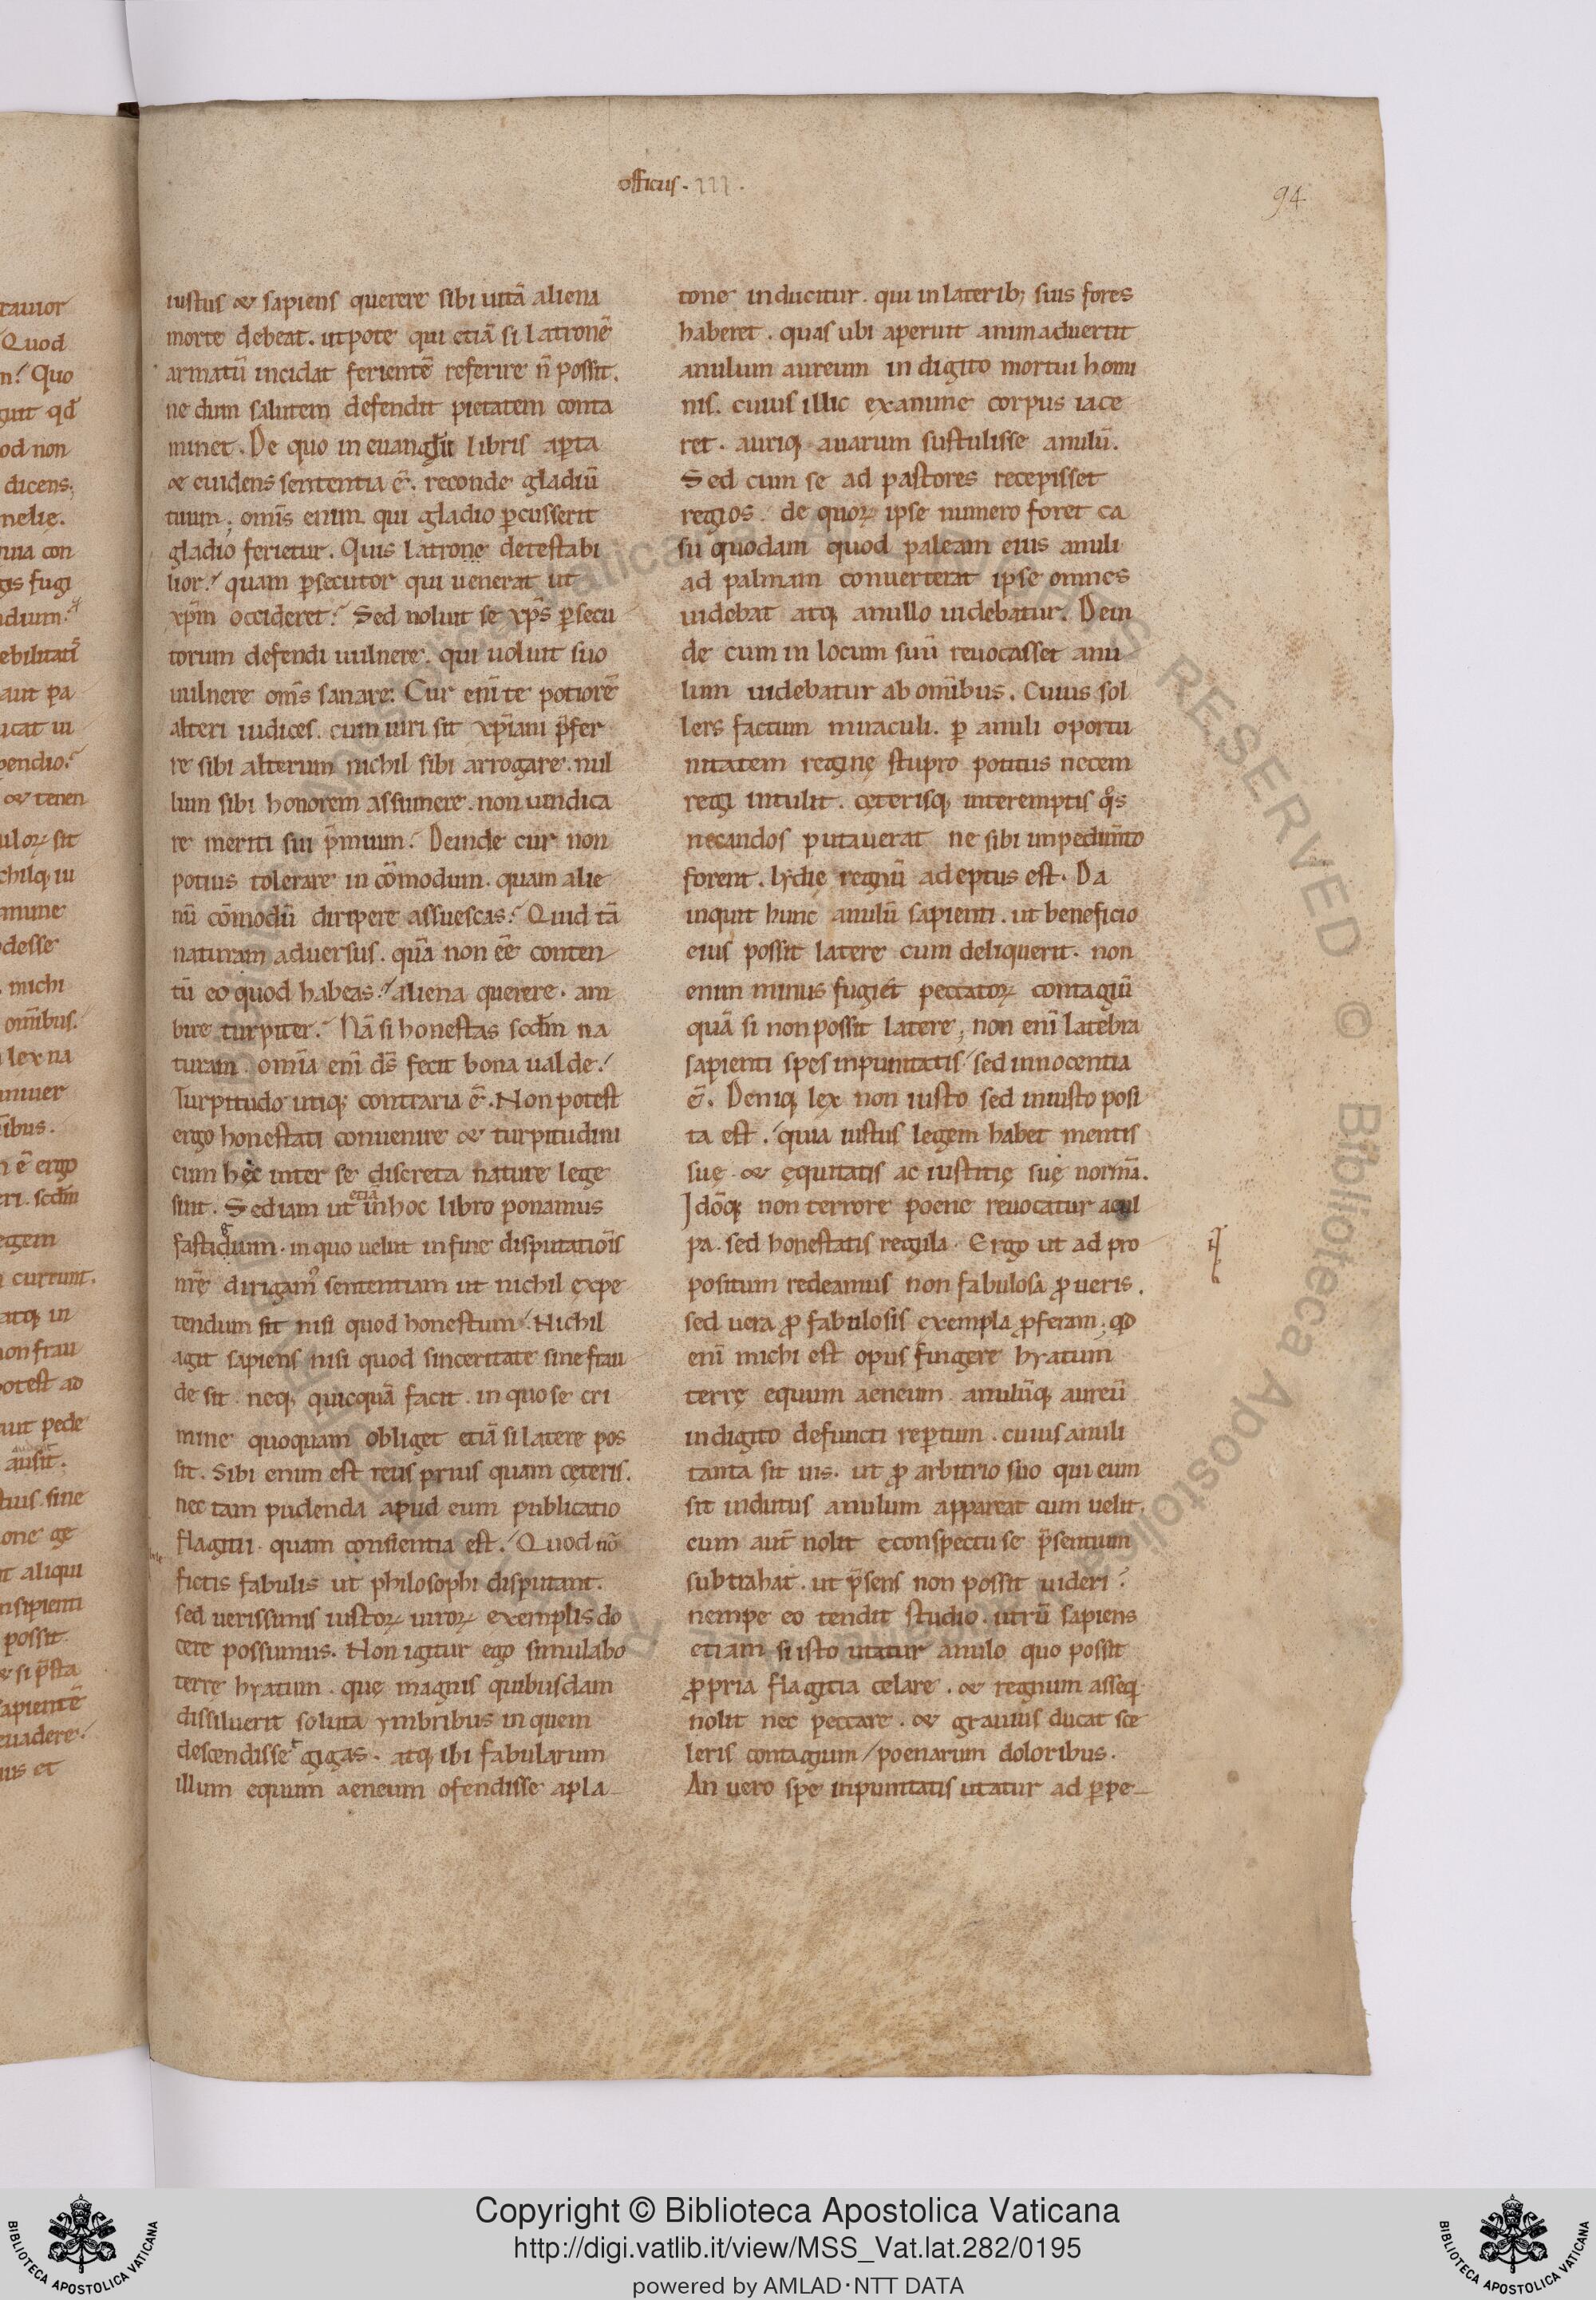 officiis · III ·
94
iustus & sapiens querere sibi uitā aliena
morte debeat. utpote qui etiā si latronē
armatū incidat ferientē referire n̄ possit.
ne dum salutem defendit pietatem conta
minet. De quo in euanglii libris aꝑta
& euidens sententia ē. reconde gladiū
tuum; om̄is enim qui gladio ꝑcusserit
gladio ferietur. Quis latrone detestabi
lior? quam ꝑsecutor qui uenerat ut
xp̄m occideret? Sed noluit se xp̄s ꝑsecu
torum defendi uulnere. qui uoluit suo
uulnere om̄s sanare. Cur eni te potiorē
alteri iudices. cum uiri sit xp̄iani p̄fer
re sibi alterum nichil sibi arrogare. nul
lum sibi honorem assumere. non uindica
re meriti sui p̄mium? Deinde cur non
potius tolerare in cōmodum. quam alie
nū cōmodū diripere assuescas? Quid tā
naturam aduersus. quā non eē conten
tū eo quod habeas? aliena querere. am
bire turpiter? Nā si honestas scdm̄ na
turam. om̄ia eni d̄s fecit bona ualde?
Turpitudo utiq; contraria ē. Non potest
ergo honestati conuenire & turpitudini
cum hęc inter se discreta nature lege
sint. Sed iam ut etiā in hoc libro ponamus
fastidium. in quo uelut in fine disputatiōis
nr̄ę dirigam᷒ sententiam ut nichil expe
tendum sit nisi quod honestum? Nichil
agit sapiens nisi quod sinceritate sine frau
de sit. neq; quicquā facit. in quo se cri
mine quoquam obliget etiā si latere pos
sit. Sibi enim est reus prius quam cęteris.
nec tam pudenda apud eum publicatio
flagitii. quam consientia est. Quod nō
fictis fabulis ut philosophi disputant.
sed uerissimis iustoꝝ uiroꝝ exemplis do
cere possumus. Non igitur ego simulabo
terrę hyatum. que magnis quibusdam
dissiluerit soluta ymbribus in quem
descendisse gigas. atq; ibi fabularum
illum equum aeneum ofendisse a pla
tone inducitur. qui in laterib; suis fores
haberet. quas ubi aperuit animaduertit
anulum aureum in digito mortui homi
nis. cuius illic exanime corpus iace
ret. auriq; auarum sustulisse anulū.
Sed cum se ad pastores recepisset
regios. de quoꝝ ipse numero foret ca
su quodam quod paleam eius anuli
ad palmam conuerterat ipse omnes
uidebat atq; anullo uidebatur. Dein
de cum in locum suū reuocasset anu
lum uidebatur ab om̄ibus. Cuius sol
lers factum miraculi. ꝑ anuli oportu
nitatem reginę stupro potitus necem
regi intulit. cęterisq; interemptis qͦs
necandos putauerat ne sibi impedim̄to
forent. lydię regnū adeptus est. Da
inquit hunc anulū sapienti. ut beneficio
eius possit latere cum deliquerit. non
enim minus fugiet peccatoꝝ contagiū
quā si non possit latere; non eni latebra
sapienti spes inpunitatis sed innocentia
ē. Deniq; lex non iusto sed iniusto posi
ta est. quia iustus legem habet mentis
suę & ęquitatis ac iustitię suę normā.
Idōq; non terrore poene reuocatur a cul
pa. sed honestatis regula. Ergo ut ad pro
positum redeamus non fabulosa ꝓ ueris.
sed uera ꝓ fabulosis exempla ꝓferam; qd
eni michi est opus fingere hyatum
terrę equum aeneum. anulūq; aureū
in digito defuncti reꝑtum. cuius anuli
tanta sit uis. ut ꝓ arbitrio suo qui eum
sit indutus anulum appareat cum uelit.
cum aut̄ nolit e conspectu se p̄sentium
subtrahat. ut p̄sens non possit uideri?
nempe eo tendit studio. utrū sapiens
etiam si isto utatur anulo quo possit
ꝓpria flagitia celare. & regnum asseq
nolit nec peccare. & grauius ducat sce
leris contagium / poenarum doloribus.
An uero spe inpunitatis utatur ad ꝑpe
Copyright © Biblioteca Apostolica Vaticana
http://digi.vatlib.it/view/MSS_Vat.lat.282/0195
powered by AMLAD·NTT DATA